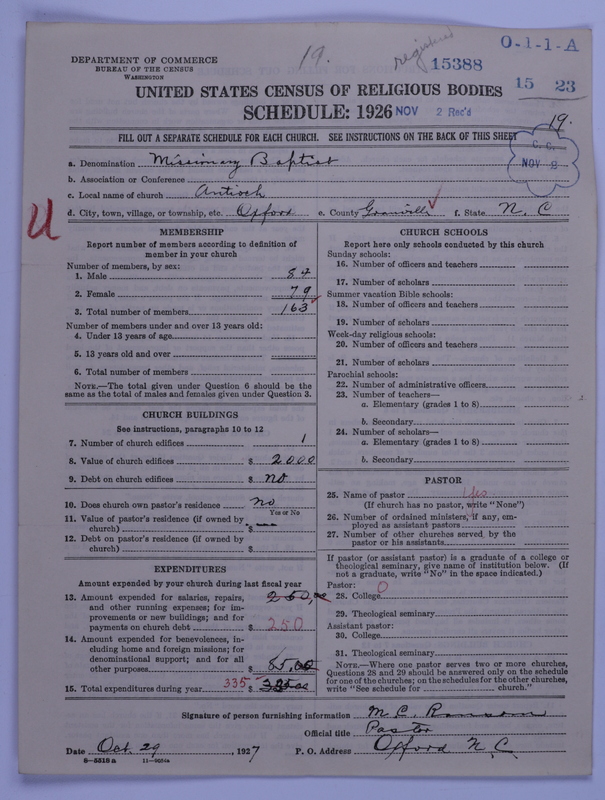 19.
registered
O-1-1-A
15388
15 23
DEPARTMENT OF COMMERCE
BUREAU OF THE CENSUS
WASHINGTON
UNITED STATES CENSUS OF RELIGIOUS BODIES
SCHEDULE: 1926
NOV 2 Rec'd
19.
FILL OUT A SEPARATE SCHEDULE FOR EACH CHURCH. SEE INSTRUCTIONS ON THE BACK OF THIS SHEET
C. C.
NOV 2
a. Denomination Missionary Baptist
b. Association or Conference
c. Local name of church Antioch
d. City, town, village, or township, etc. Oxford e. County Granville f. State N. C
U
MEMBERSHIP
Report number of members according to definition of
member in your church
Number of members, by sex:
1. Male 84
2. Female 79
3. Total number of members 163
Number of members under and over 13 years old:
4. Under 13 years of age
5. 13 years old and over
6. Total number of members
NOTE.—The total given under Question 6 should be the
same as the total of males and females given under Question 3.
CHURCH BUILDINGS
See instructions, paragraphs 10 to 12
7. Number of church edifices 1
8. Value of church edifices $ 2000
9. Debt on church edifices $ no
10. Does church own pastor's residence no
Yes or No
11. Value of pastor's residence (if owned by
church) $
12. Debt on pastor's residence (if owned by
church) $
EXPENDITURES
Amount expended by your church during last fiscal year
13. Amount expended for salaries, repairs, 250.00
and other running expenses; for im-
provements or new buildings; and for
payments on church debt $ 250
14. Amount expended for benevolences, in-
cluding home and foreign missions; for
denominational support; and for all
other purposes $ 85.00
15. Total expenditures during year 335 $
CHURCH SCHOOLS
Report here only schools conducted by this church
Sunday schools:
16. Number of officers and teachers
17. Number of scholars
Summer vacation Bible schools:
18. Number of officers and teachers
19. Number of scholars
Week-day religious schools:
20. Number of officers and teachers
21. Number of scholars
Parochial schools:
22. Number of administrative officers
23. Number of teachers—
a. Elementary (grades 1 to 8)
b. Secondary
24. Number of scholars—
a. Elementary (grades 1 to 8)
b. Secondary
PASTOR
25. Name of pastor Yes
(If church has no pastor, write "None")
26. Number of ordained ministers, if any, em-
ployed as assistant pastors
27. Number of other churches served by the
pastor or his assistants
If pastor (or assistant pastor) is a graduate of a college or
theological seminary, give name of institution below. (If
not a graduate, write "No" in the space indicated.)
Pastor:
28. College O
29. Theological seminary
Assistant pastor:
30. College
31. Theological seminary
NOTE.—Where one pastor serves two or more churches,
Questions 28 and 29 should be answered only on the schedule
for one of the churches; on the schedules for the other churches,
write "See schedule for church."
Signature of person furnishing information M. C. Ransom
Official title Pastor
Date Oct. 29, 1927 P. O. Address Oxford N. C.
8-5318 a 11-9034a